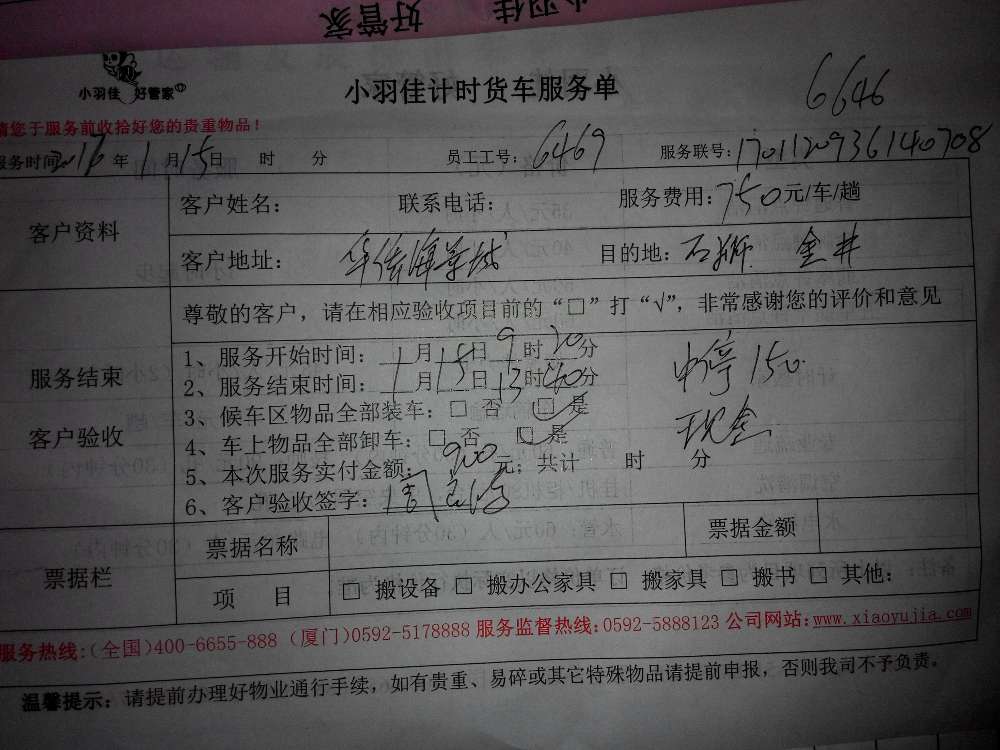 小羽佳 好管家
小羽佳 好管家
小羽佳计时货车服务单
6646
请您于服务前收拾好您的贵重物品！
服务时间2017年1月15日 时 分 员工工号：6469 服务联号：1701120936140708
客户资料
客户姓名： 联系电话： 服务费用：750元/车/趟
客户地址： 目的地：石狮 金井
服务结束
客户验收
尊敬的客户，请在相应验收项目前的“□”打“√”，非常感谢您的评价和意见
1、服务开始时间：1月15日9时20分
2、服务结束时间：1月15日13时40分
中停150
3、候车区物品全部装车：□ 否 □ 是
4、车上物品全部卸车：□ 否 □ 是
现金
5、本次服务实付金额：900元；共计 时 分
6、客户验收签字：
票据栏
票据名称 票据金额
项 目 □ 搬设备 □ 搬办公家具 □ 搬家具 □ 搬书 □ 其他：
服务热线：（全国）400-6655-888（厦门）0592-5178888 服务监督热线：0592-5888123 公司网站：www.xiaoyujia.com
温馨提示：请提前办理好物业通行手续，如有贵重、易碎或其它特殊物品请提前申报，否则我司不予负责。